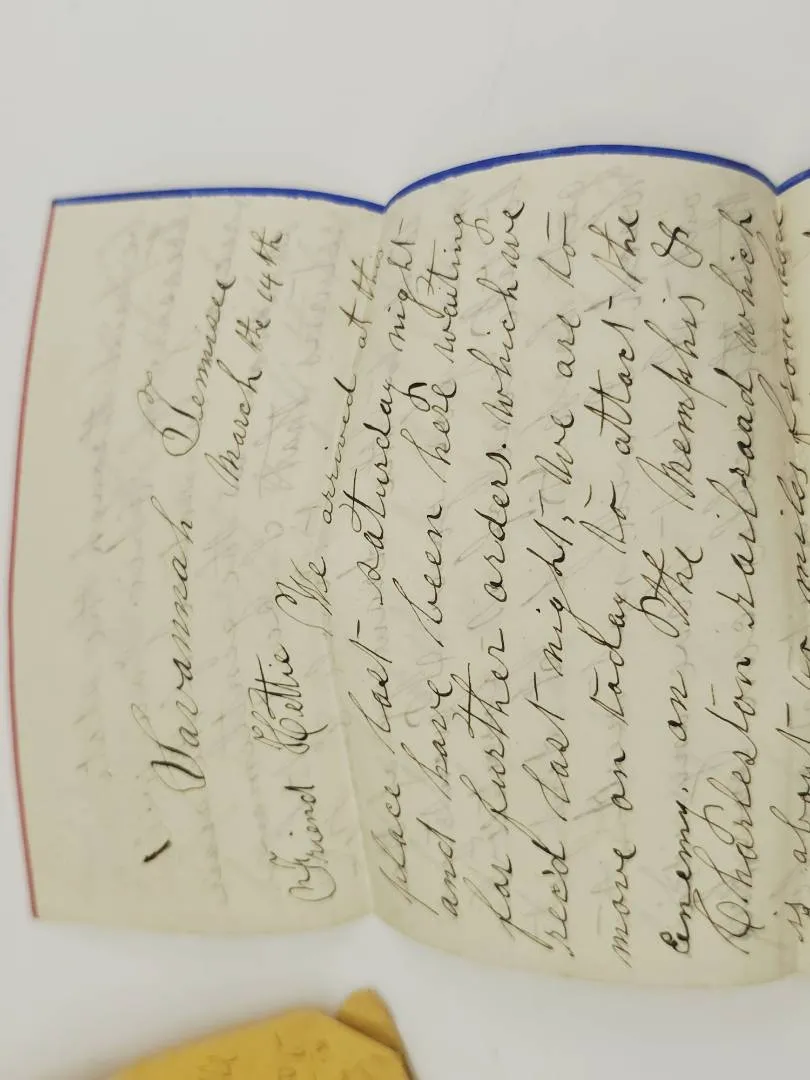 Savannah Tennisee
March the 14th
Friend Hettie We arrived at this
place last saturday night
and have been here waiting
for further orders. which we
rec'd last night, We are to
move on today to attact the
Enemy. on The Memphis &
Charleston railroad which
is about miles from